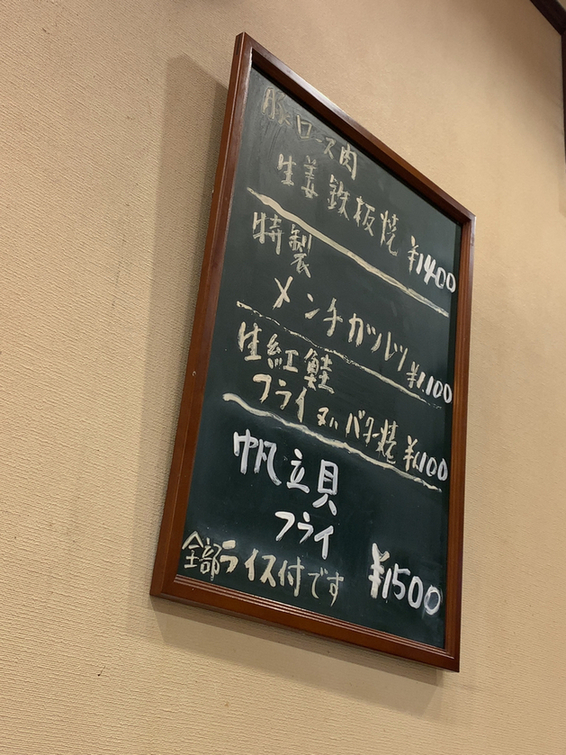 豚ロース肉
生姜鉄板焼 ¥1400
特製
メンチカツレツ ¥1,100
生紅鮭
フライ又ハバター焼 ¥1,100
帆立貝
フライ ¥1500
全部ライス付です